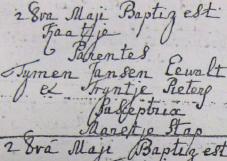 28va Maji Baptiz est
Kaatje
Parentes
Tymen Jansen Lewalt
& Tryntje Pieters
Susceptrix
Maretje Stap
28va Maji Baptiz est